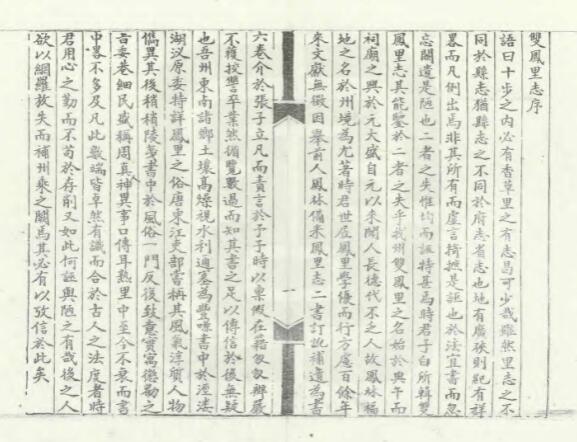 雙鳳里志序
語曰十步之內必有香草里之有志曷可少哉雖然里志之不
同於縣志猶縣志之不同於府志省志也地有廣狹則紀有詳
畧而凡例出焉非其所有而虛言掎摭是誣也於法宜書而忽
忘闕遺是陋也二者之失惟均而誣特甚為時君子白所輯雙
鳳里志其能鑒於二者之失乎我州雙鳳里之名始於典午而
祠廟之興於元大盛自元以來聞人長德代不乏人故鳳林福
地之名於州境為尤著時君世居鳳里學優而行方慮百餘年
來文獻無徵因舉前人鳳林備采鳳里志二書訂訛補遺為書
六卷介於張子立凡而責言於予予時以稟假在籍匆匆辦嚴
不獲按讐卒業然循覽數過而知其書之足以傳信於後無疑
也吾州東南諸鄉土壤高燥視水利通塞為豐嗛書中於湮淒
湖汊原委特詳鳳里之俗唐東江吏部嘗稱其風氣淳質人物
儁異其後稍稍陵夷書中於風俗一門反復致意實寓懲勸之
旨委巷細民盛稱周真神異事口傳耳熟里中至今不衰而書
中畧不多及凡此數端皆卓然有識而合於古人之法度者時
君用心之勤而不苟於存削又如此何誣與陋之有哉後之人
欲以網羅放失而補州乘之闕焉其必有以攷信於此矣
一